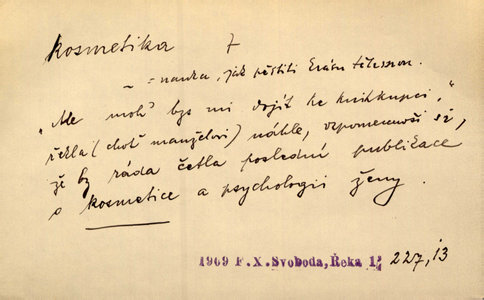 kosmetika 7
~ = nauka, jak pěstiti krásu tělesnou.
„Ale moh' bys mi dojít ke knihkupci,"
řekla (choť manželovi) náhle, vzpomenuvši si,
že by ráda četla poslední publikace
o kosmetice a psychologii ženy.
1909 F.X.Svoboda, Řeka 1 227,13